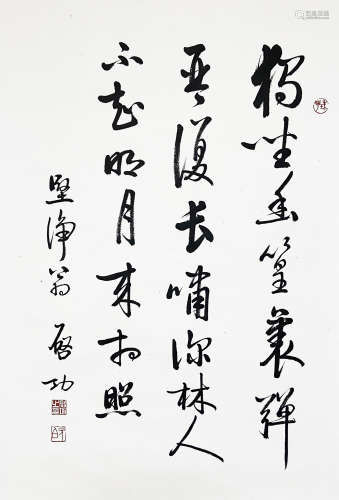 獨坐幽篁裏彈
琴復长嘯深林人
不知明月来相照
堅淨翁 啓功